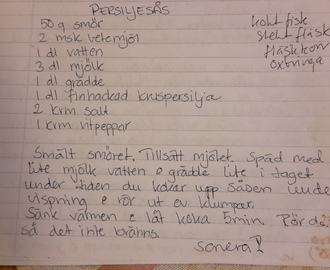 PERSILJESÅS
50 g smör
2 msk vetemjöl
1 dl vatten
3 dl mjölk
1 dl grädde
1 dl finhackad kruspersilja
2 krm salt
1 krm vitpeppar
kokt fisk
stekt fläsk
fläskkorv
oxbringa
Smält smöret. Tillsätt mjölet. Späd med
lite mjölk vatten o grädde lite i taget
under tiden du kokar upp såsen under
vispning o rör ut ev klumpar.
Sänk värmen o låt koka 5 min. Rör då
så det inte bränns.